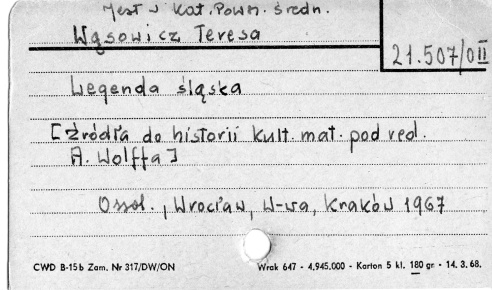 Jest w Kat. Pown. średn.
Wąsowicz Teresa
21.507/OII
Legenda śląska
[Źródła do historii kult. mat. pod red.
A. Wolffa]
Ossol., Wrocław, W-wa, Kraków 1967
CWD B-15b Zam. Nr 317/DW/ON Wrak 647 - 4,945.000 - Karton 5 kl. 180 gr - 14. 3. 68.